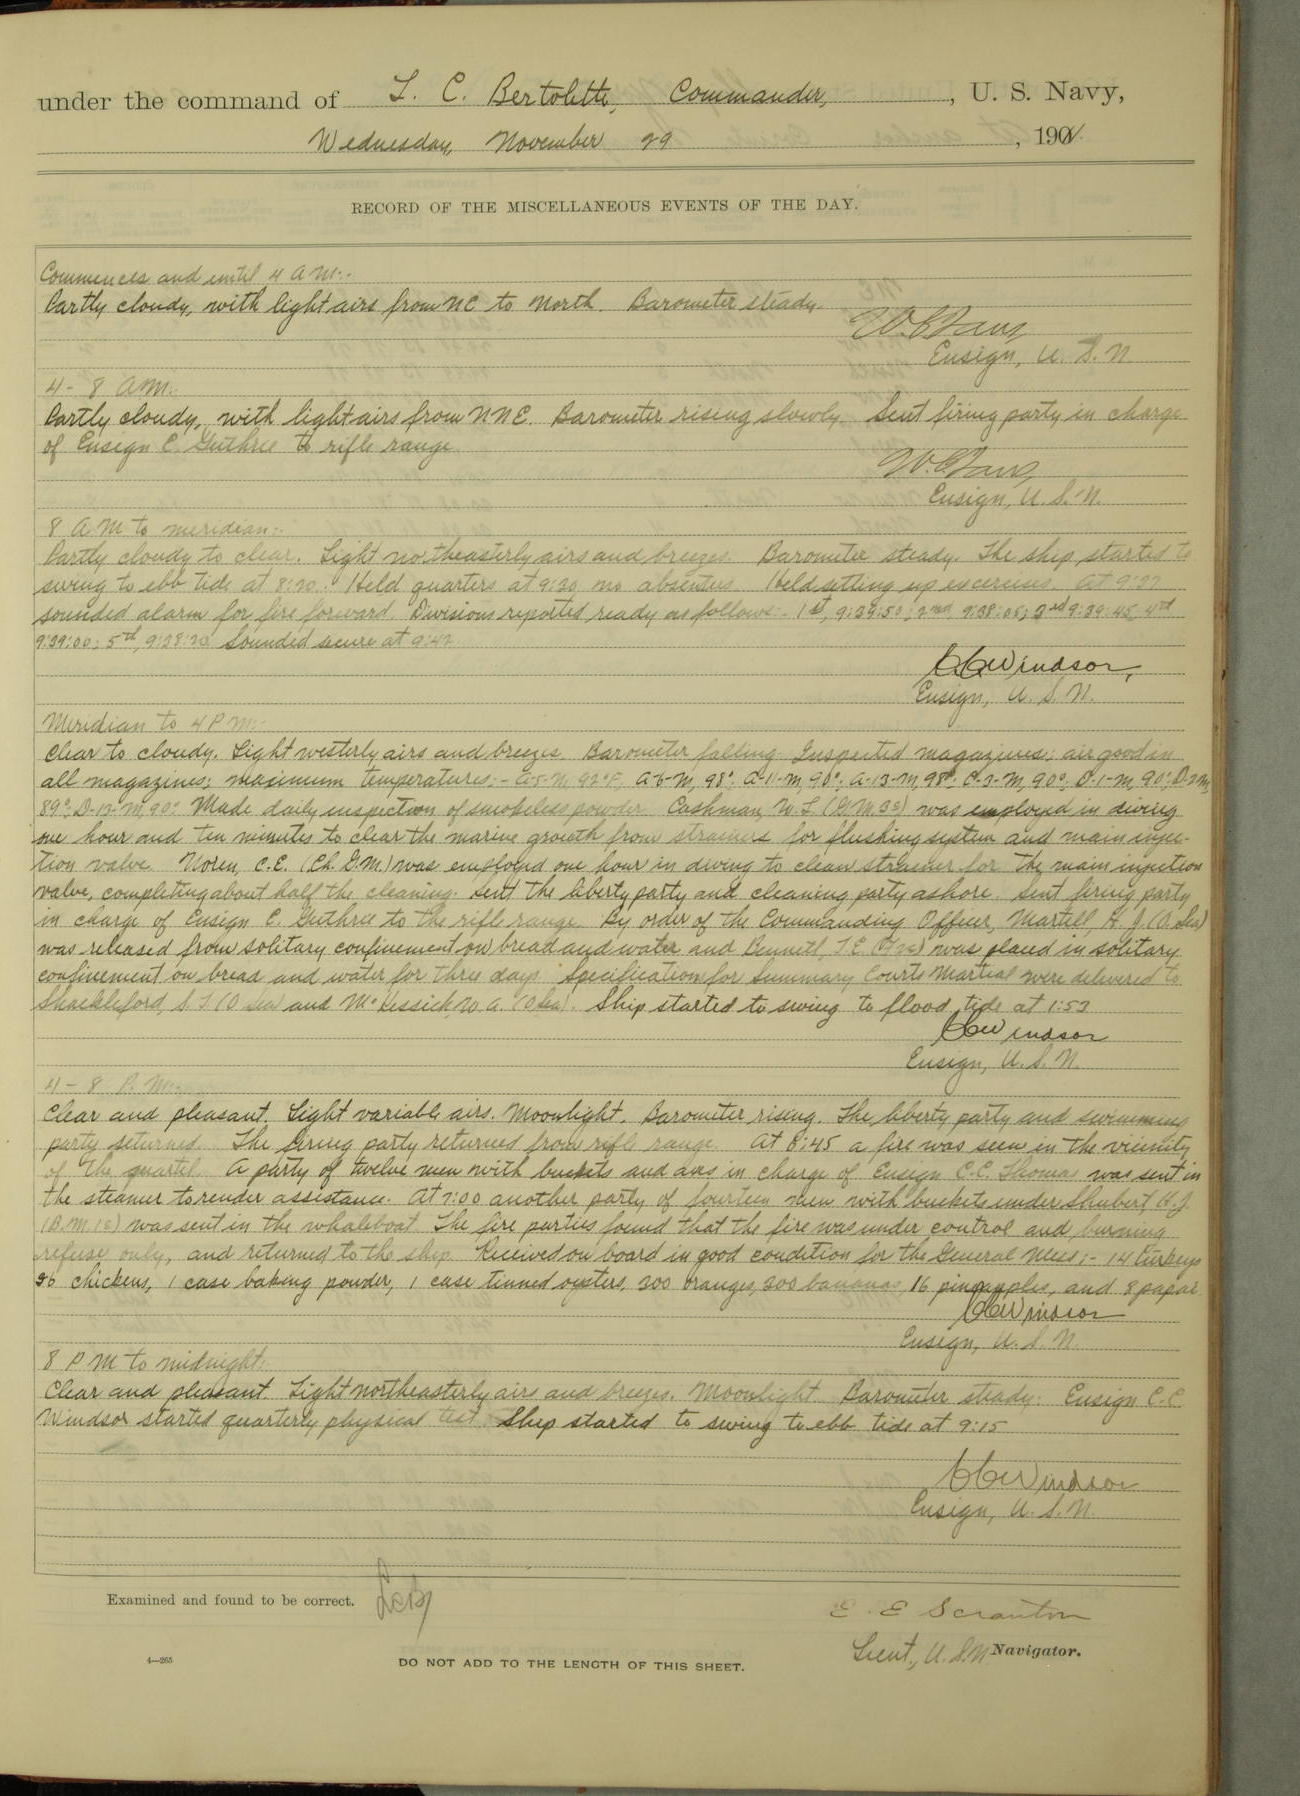 under the command of L. C. Bertolette, Commander, , U. S. Navy,
Wednesday, November 29 , 190
RECORD OF THE MISCELLANEOUS EVENTS OF THE DAY.
Commences and until 4 A M:-
Partly cloudy, with light airs from NE to North. Barometer steady.
Ensign, U. S. N
4 - 8 AM:-
Partly cloudy, with light airs from NNE. Barometer rising slowly. Sent firing party in charge
of Ensign C. Guthrie to rifle range
Ensign, U. S. N.
8 A M to meridian:-
Partly cloudy to clear. Light northeasterly airs and breezes. Barometer steady. The ship started to
swing to ebb tide at 8:20. Held quarters at 9:20, no absentees. Held setting up exercises. At 9:37
sounded alarm for fire forward. Divisions reported ready as follows:- 1st, 9:39:50; 2nd, 9:38:05; 3rd 9:39:45, 4th
9:39:00; 5th, 9:38:20 Sounded secure at 9:42
CCWindsor,
Ensign, U. S. N.
Meridian to 4 P M:-
Clear to cloudy. Light westerly airs and breezes. Barometer falling. Inspected magazines; air good in
all magazines; maximum temperatures:- A-5-M, 92°F. A-6-M, 98°, A-11-M, 90°, A-13-M, 98°. C-3-M, 90°, D-1-M, 90°, D-2-M,
89°, D-13-M, 90° Made daily inspection of smokeless powder. Cashman, W. L. (G M 3c) was employed in diving
one hour and ten minutes to clear the marine growth from strainers for flushing system and main injec-
tion valve. Noren, C.E. (Ch. G.M.) was employed one hour in diving to clean strainer for the main injection
valve, completing about half the cleaning. Sent the liberty party and cleaning party ashore. Sent firing party
in charge of Ensign C. Guthrie to the rifle range. By order of the Commanding Officer, Martell, H. J. (O. Sea)
was released from solitary confinement on bread and water and Bennett, was placed in solitary
confinement on bread and water for three days. Specification for Summary Courts Martial were delivered to
Shackleford, S. T (O Sea) and McKissick, W. A. (O Sea). Ship started to swing to flood tide at 1:53
CCWindsor
Ensign, U. S. N.
4 - 8 P. M:-
Clear and pleasant. Light variable airs. Moonlight. Barometer rising. The liberty party and swimming
party returned. The firing party returned from rifle range. At 6:45 a fire was seen in the vicinity
of the A party of twelve men with buckets and axes in charge of Ensign C.C. Thomas was sent in
the steamer to render assistance. At 7:00 another party of fourteen men with buckets under Shubert, H. J.
(B.M.1c) was sent in the whaleboat. The fire parties found that the fire was under control and burning
refuse only, and returned to the ship. Received on board in good condition for the General Mess:- 14 turkeys
36 chickens, 1 case baking powder, 1 case tinned oysters, 300 oranges, 300 bananas, 16 pineapples, and 8 papai
CCWindsor
Ensign, U. S. N.
8 P M to midnight:-
Clear and pleasant. Light northeasterly airs and breezes. Moonlight. Barometer steady. Ensign C. C
Windsor started quarterly physical test. Ship started to swing to ebb tide at 9:15
CCWindsor
Ensign, U. S. N.
Examined and found to be correct. LCB
E. E Scranton
Lieut., U. S. N Navigator.
4—265
DO NOT ADD TO THE LENGTH OF THIS SHEET.